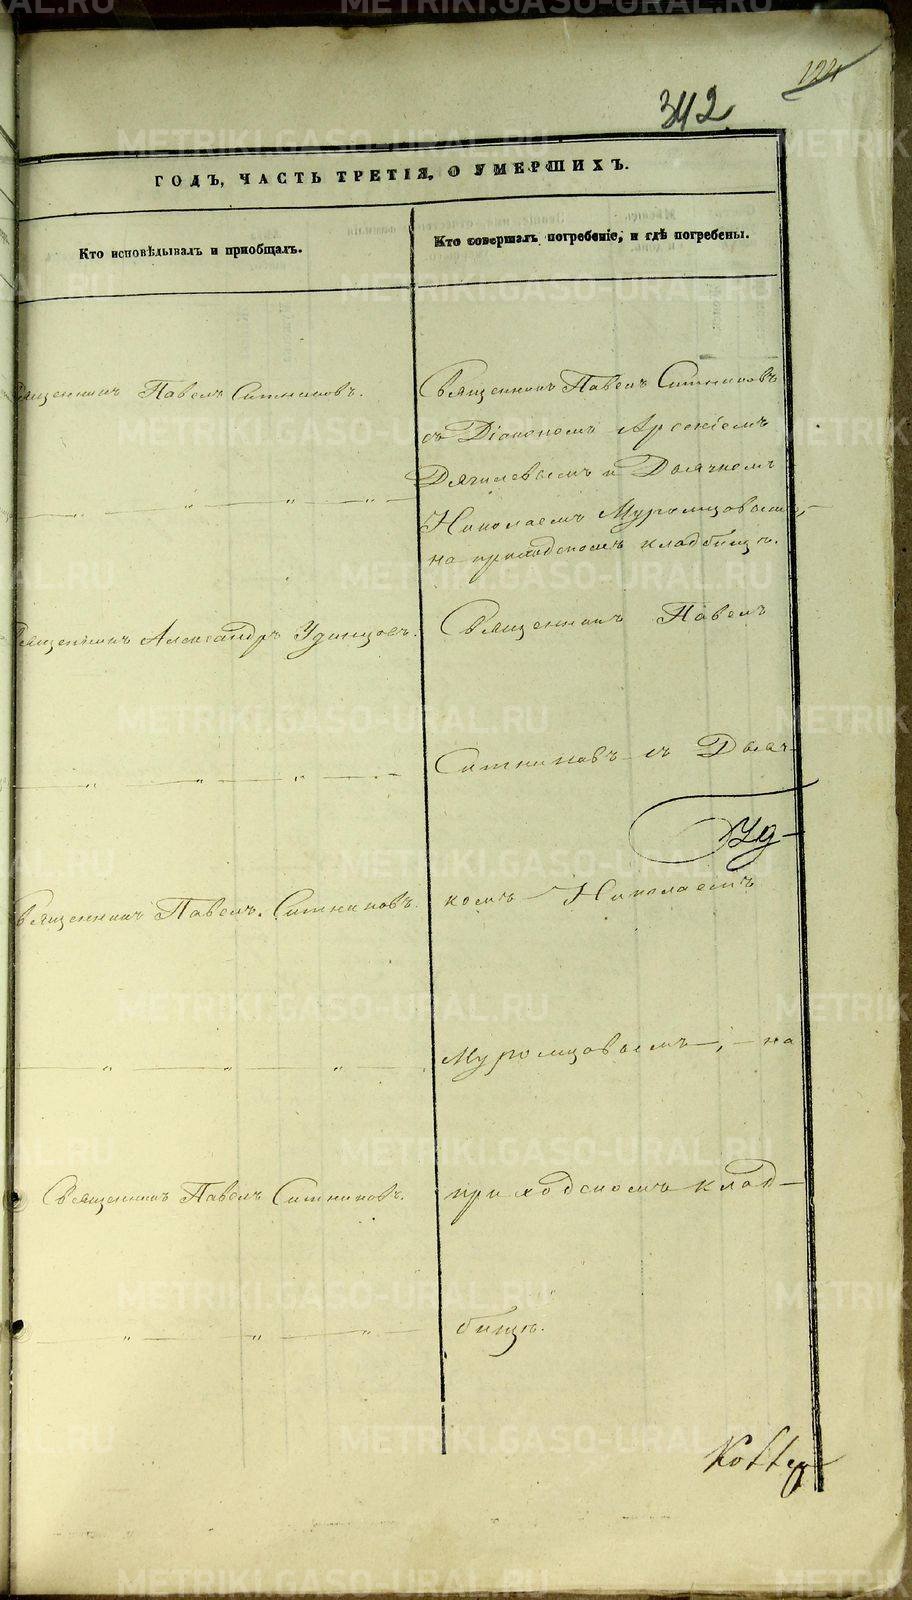 124
342
ГОДЪ, ЧАСТЬ ТРЕТІЯ, О УМЕРШИХЪ.
Кто исповѣдывалъ и приобщалъ.
Кто совершалъ погребеніе, и гдѣ погребены.
Священникъ Павелъ Ситниковъ.
Священникъ Павелъ Ситниковъ
съ Діакономъ Арсеніемъ
и Дьячкомъ
Николаемъ Муромцовымъ, —
на приходскомъ кладбищѣ.
„ — „ — „ —
Священникъ Александръ Удинцовъ.
Священникъ Павелъ
Ситниковъ съ Дьяч-
„ — „ — „ —
Священникъ Павелъ Ситниковъ.
комъ Николаемъ
Муромцовымъ, — на
„ — „ — „ —
Священникъ Павелъ Ситниковъ.
приходскомъ клад-
бищѣ.
„ — „ — „ —
METRIKI.GASO-URAL.RU